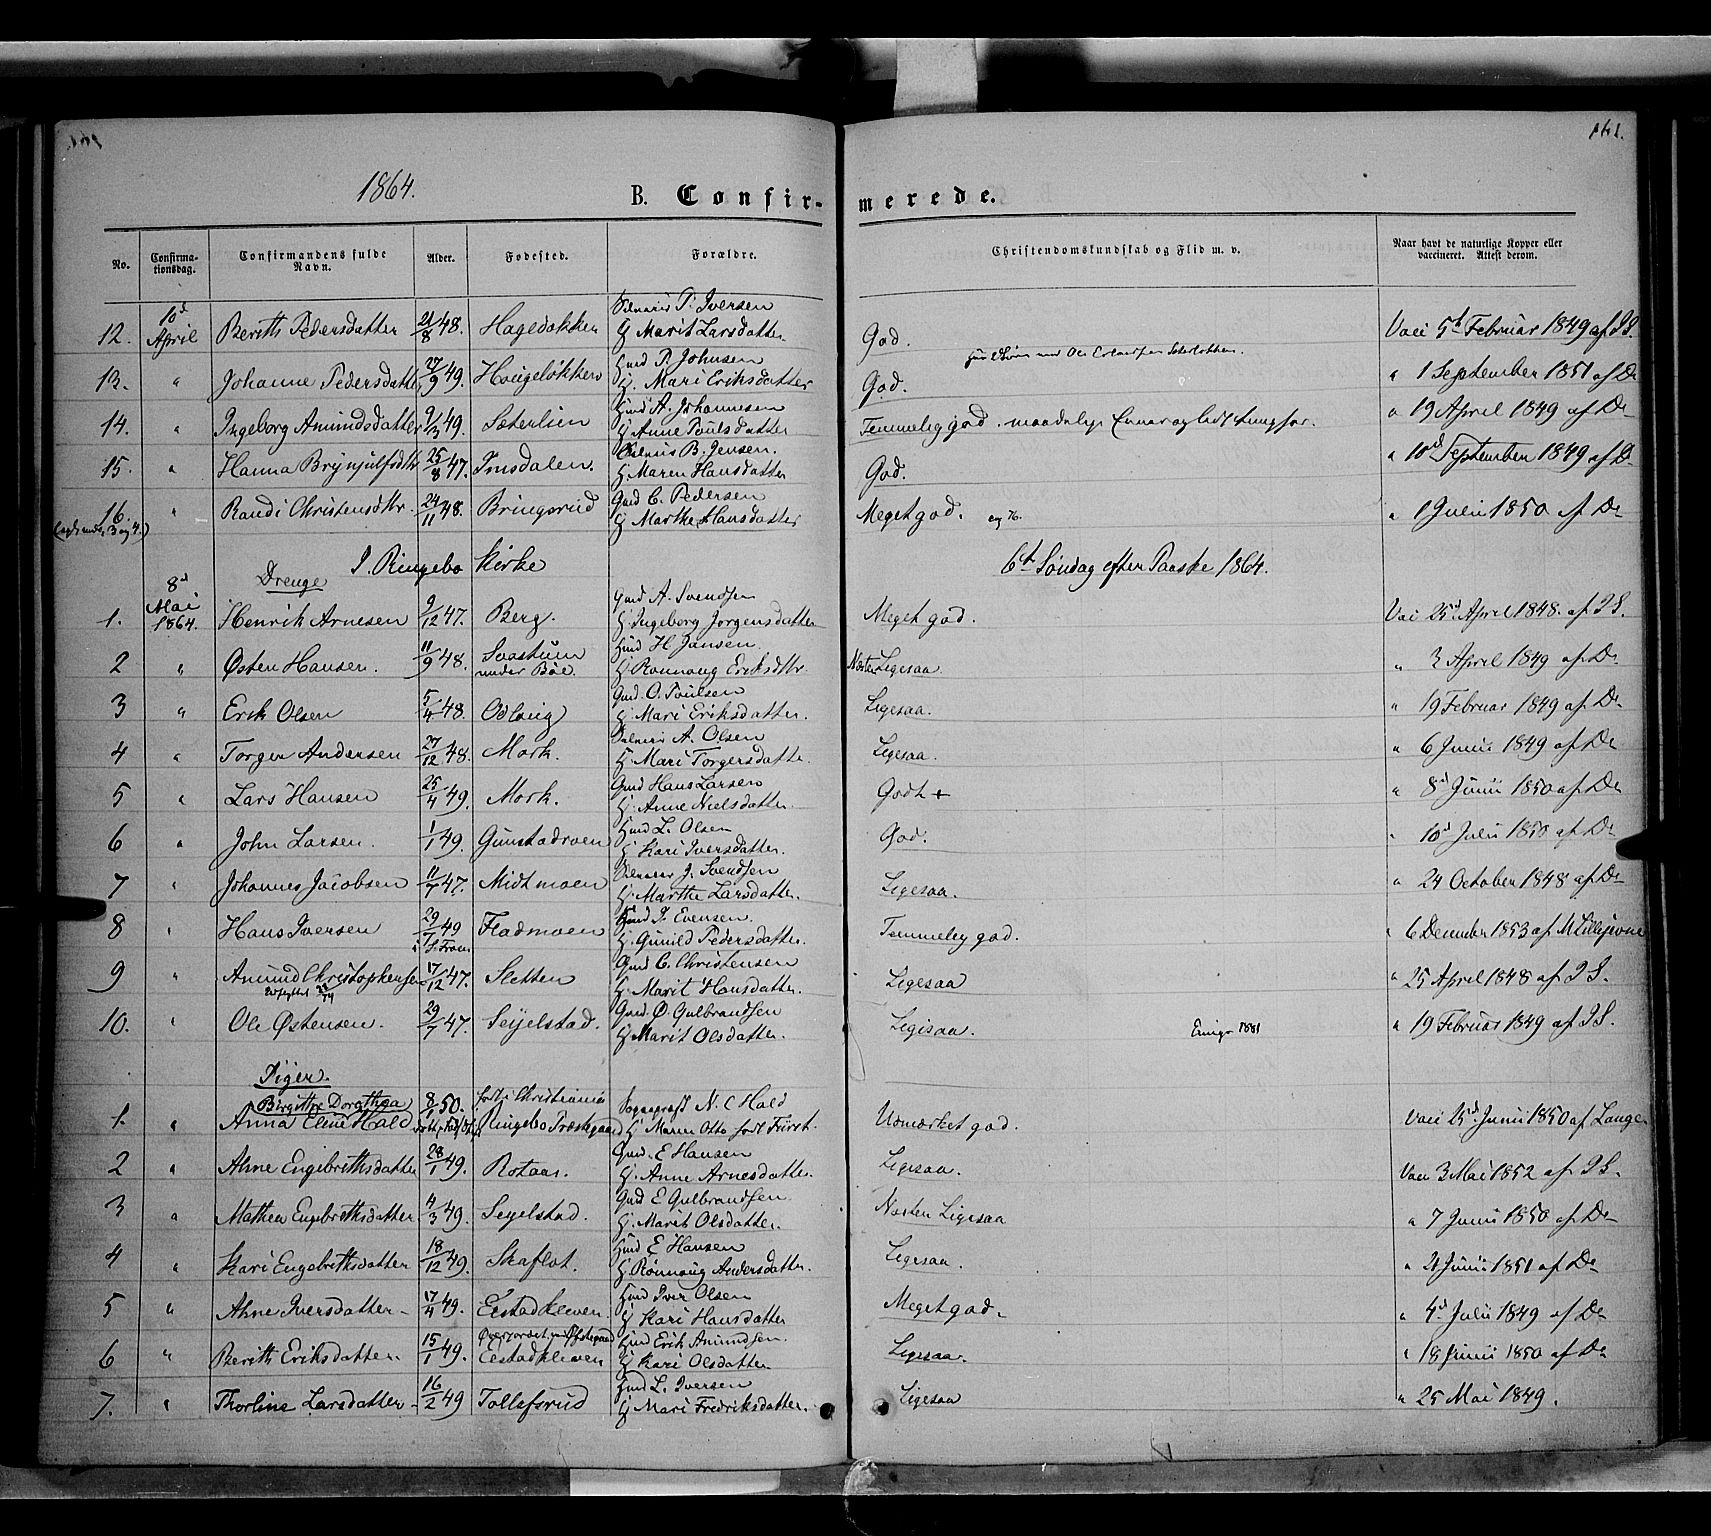 161.
1864.
B. Confir- merede.
No. Confirmationsdag. Confirmandens fulde Navn. Alder. Fødested. Forældre. Christendomskundskab og Flid m. v. Naar havt de naturlige Kopper eller vaccineret. Attest derom.
12. 10d April Berith Pedersdatter 21/8 48. Hagedokken P. Iversen H Marit Larsdatter God. Vacc 5t Februar 1849 af I S.
13. " Johanne Pedersdatter 27/9 49. Haugeløkken Huusd P. Johnsen H. Mari Eriksdatter God. " 1 September 1851 af Do
14. " Ingeborg Amundsdatter 9/3 49. Sæterlien Huusd A. Johannesen H Anne Poulsdatter Temmelig god. " 19 April 1849 af Do
15. " Hanna Brynjulfsdtr 25/8 47. Imsdalen. B. Jensen. H Maren Hansdatter God. " 10d September 1849 af Do
16. " Randi Christensdtr. 24/11 48. Bringsrud Gmd C. Pedersen H Marthe Hansdatter Meget god. " 1 Julii 1850 af Do
I Ringebo Kirke 6t Søndag efter Paaske 1864.
Drenge
1. 8d Mai 1864. Henrik Arnesen 9/12 47. Berg. Gmd A. Svendsen H Ingeborg Jørgensdatter Meget god. Vac 25d April 1848. af I S.
2 " Østen Hansen. 11/9 48. Svastum under Bøe. Huusd H Jansen H Rønnoug Eriksdtr. Næsten Ligesaa. " 3 April 1849 af Do
3 " Erik Olsen 5/4 48. Odloug Gmd. O. Poulsen H. Mari Eriksdatter. Ligesaa. " 19 Februar 1849 af Do
4 " Torger Andersen 27/12 48. Mork. A. Olsen H. Mari Torgersdatter Ligesaa. " 6 Junii 1849 af Do
5 " Lars Hansen 25/4 49. Mork. Gmd Hans Larsen H. Anne Nielsdatter Godt + " 8d Junii 1850 af Do
6 " John Larsen. 1/1 49. Gunstadmoen Huusd L. Olsen H Kari Iversdatter. God. " 10d Julii 1850 af Do
7 " Johannes Jacobsen 11/7 47. Midtmoen J. Svendsen H. Marthe Larsdatter Ligesaa. " 24 October 1848 af Do
8 " Hans Iversen 29/7 49 Fladmoen Huusd I. Evensen H. Gunild Pedersdatter. Temmelig god. " 6 December 1853 af M Lillejorne
9 " Amund Christophersen 17/12 47. Sletten Gmd C. Christensen H. Marit Hansdatter. Ligesaa " 25 April 1848 af I S.
10. " Ole Østensen. 29/7 47. Sejelstad. Gmd. Ø. Gulbrandsen H. Marit Olsdatter. Ligesaa. Emigr 1881 " 19 Februar 1849 af I S.
Piger.
1. " Birgitte Dorothea Anna Eline Hald 8/1 50. født i Christiania Ringebo Præstegaard Sognepræst N. C Hald H Maren Otto født Fürst. Udmærket god. Vacc 25d Junii 1850 af Lange
2 " Ahne Engebrethsdatter 28/1 49. Rotaas. Gmd. E Hansen H. Anne Arnesdatter. Ligesaa. Vacc 3 Mai 1852 af I S.
3 " Mathea Engebrethsdatter 4/3 49. Sejelstad. Gmd E Gulbrandsen. H. Marit Olsdatter Næsten Ligesaa " 7 Junii 1850 af Do
4 " Kari Engebrethsdatter 18/12 49. Skaflot. Huusd E Hansen H. Rønnoug Andersdatter. Ligesaa. " 21 Junii 1851 af Do
5 " Ahne Iversdatter 17/4 49. Elstadkleven Huusd Iver Olsen H Kari Hansdatter Meget god. " 4d Julii 1849 af Do
6 " Berith Eriksdatter. 15/1 49. Elstadkleven Huusd Erik Amundsen. H Kari Olsdatter Ligesaa. " 18 Junii 1850 af Do
7. " Thorline Larsdatter 16/2 49 Tollefsrud Huusd L. Iversen H Mari Fredriksdatter. Ligesaa " 25 Mai 1849.